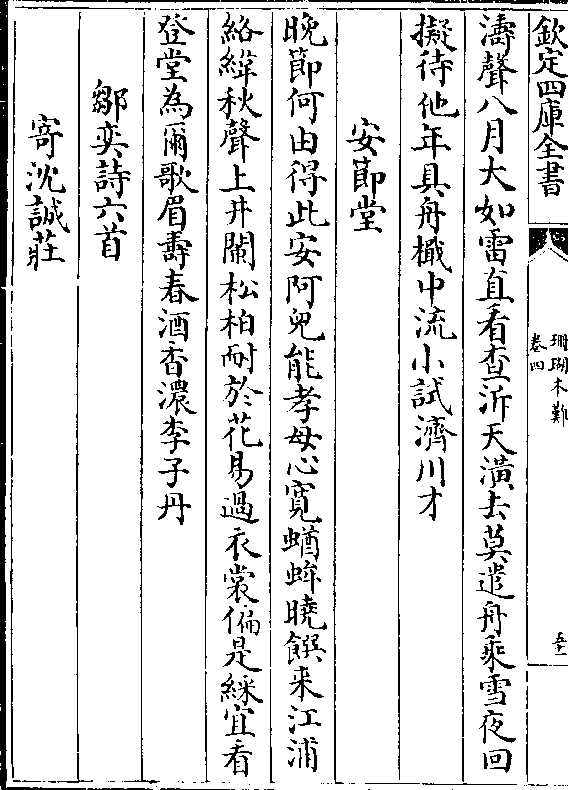 欽定四庫全書
珊瑚木難
卷四
濤聲八月大如雷直看查泝天潢去莫遣舟乘雪夜回
擬待他年具舟檝中流小試濟川才
安節堂
晚節何由得此安阿兒能孝母心寛蝤蛑曉饌来江浦
絡緯秋聲上井闌松柏耐於花易過衣裳偏是綵宜看
登堂為爾歌眉壽春酒香濃李子丹
鄒奕詩六首
寄沈誠莊